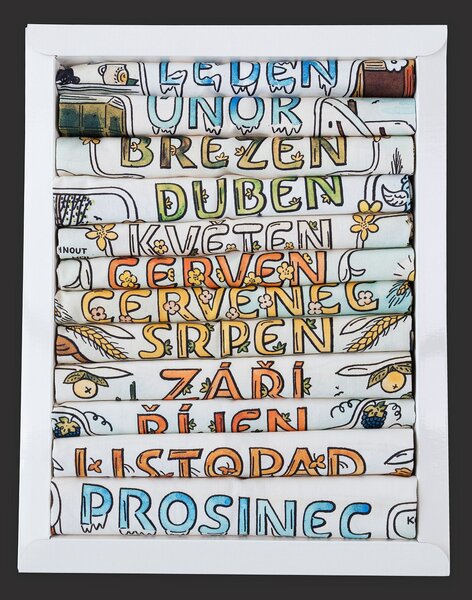 LEDEN
ÚNOR
BŘEZEN
DUBEN
KVĚTEN
ČERVEN
ČERVENEC
SRPEN
ZÁŘÍ
ŘÍJEN
LISTOPAD
PROSINEC